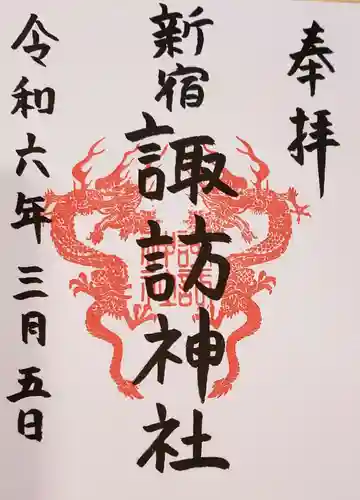 奉拝
新宿
諏訪神社
令和六年三月五日